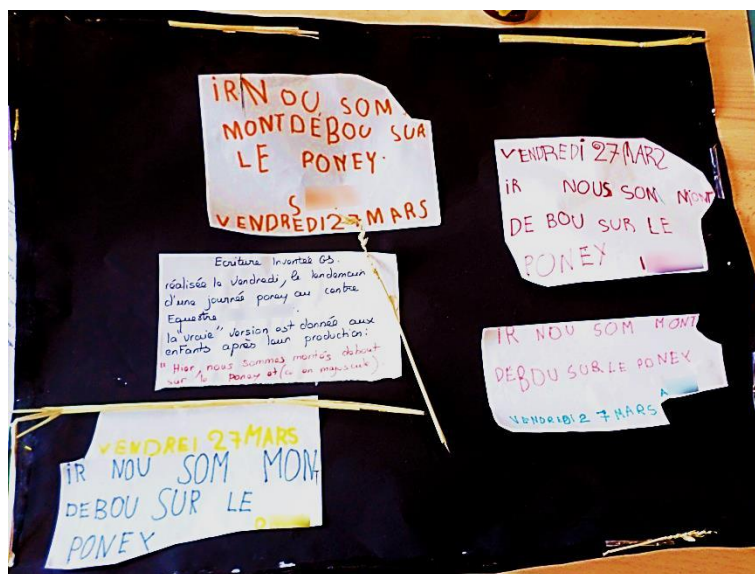 iR N OU SOM
MONTDÉBOU SUR
LE PONEY.
S
VENDREDI 27 MARS
VENDREDI 27 MARS
iR NOUS SON MONT
DE BOU SUR LE
PONEY
Ecriture Inventée GS.
réalisée le Vendredi, le lendemain
d'une journée poney au centre
Equestre
la vraie" version est donnée aux
enfants après leur production:
"Hier, nous sommes montés debout
sur le poney et (ce en majuscule)
iR NOU SOM MONT
DEBOU SUR LE PONEY
VENDREDI 2 7 MARS A
VENDREI 27 MARS
iR NOU SOM MONT
DEBOU SUR LE
PONEY